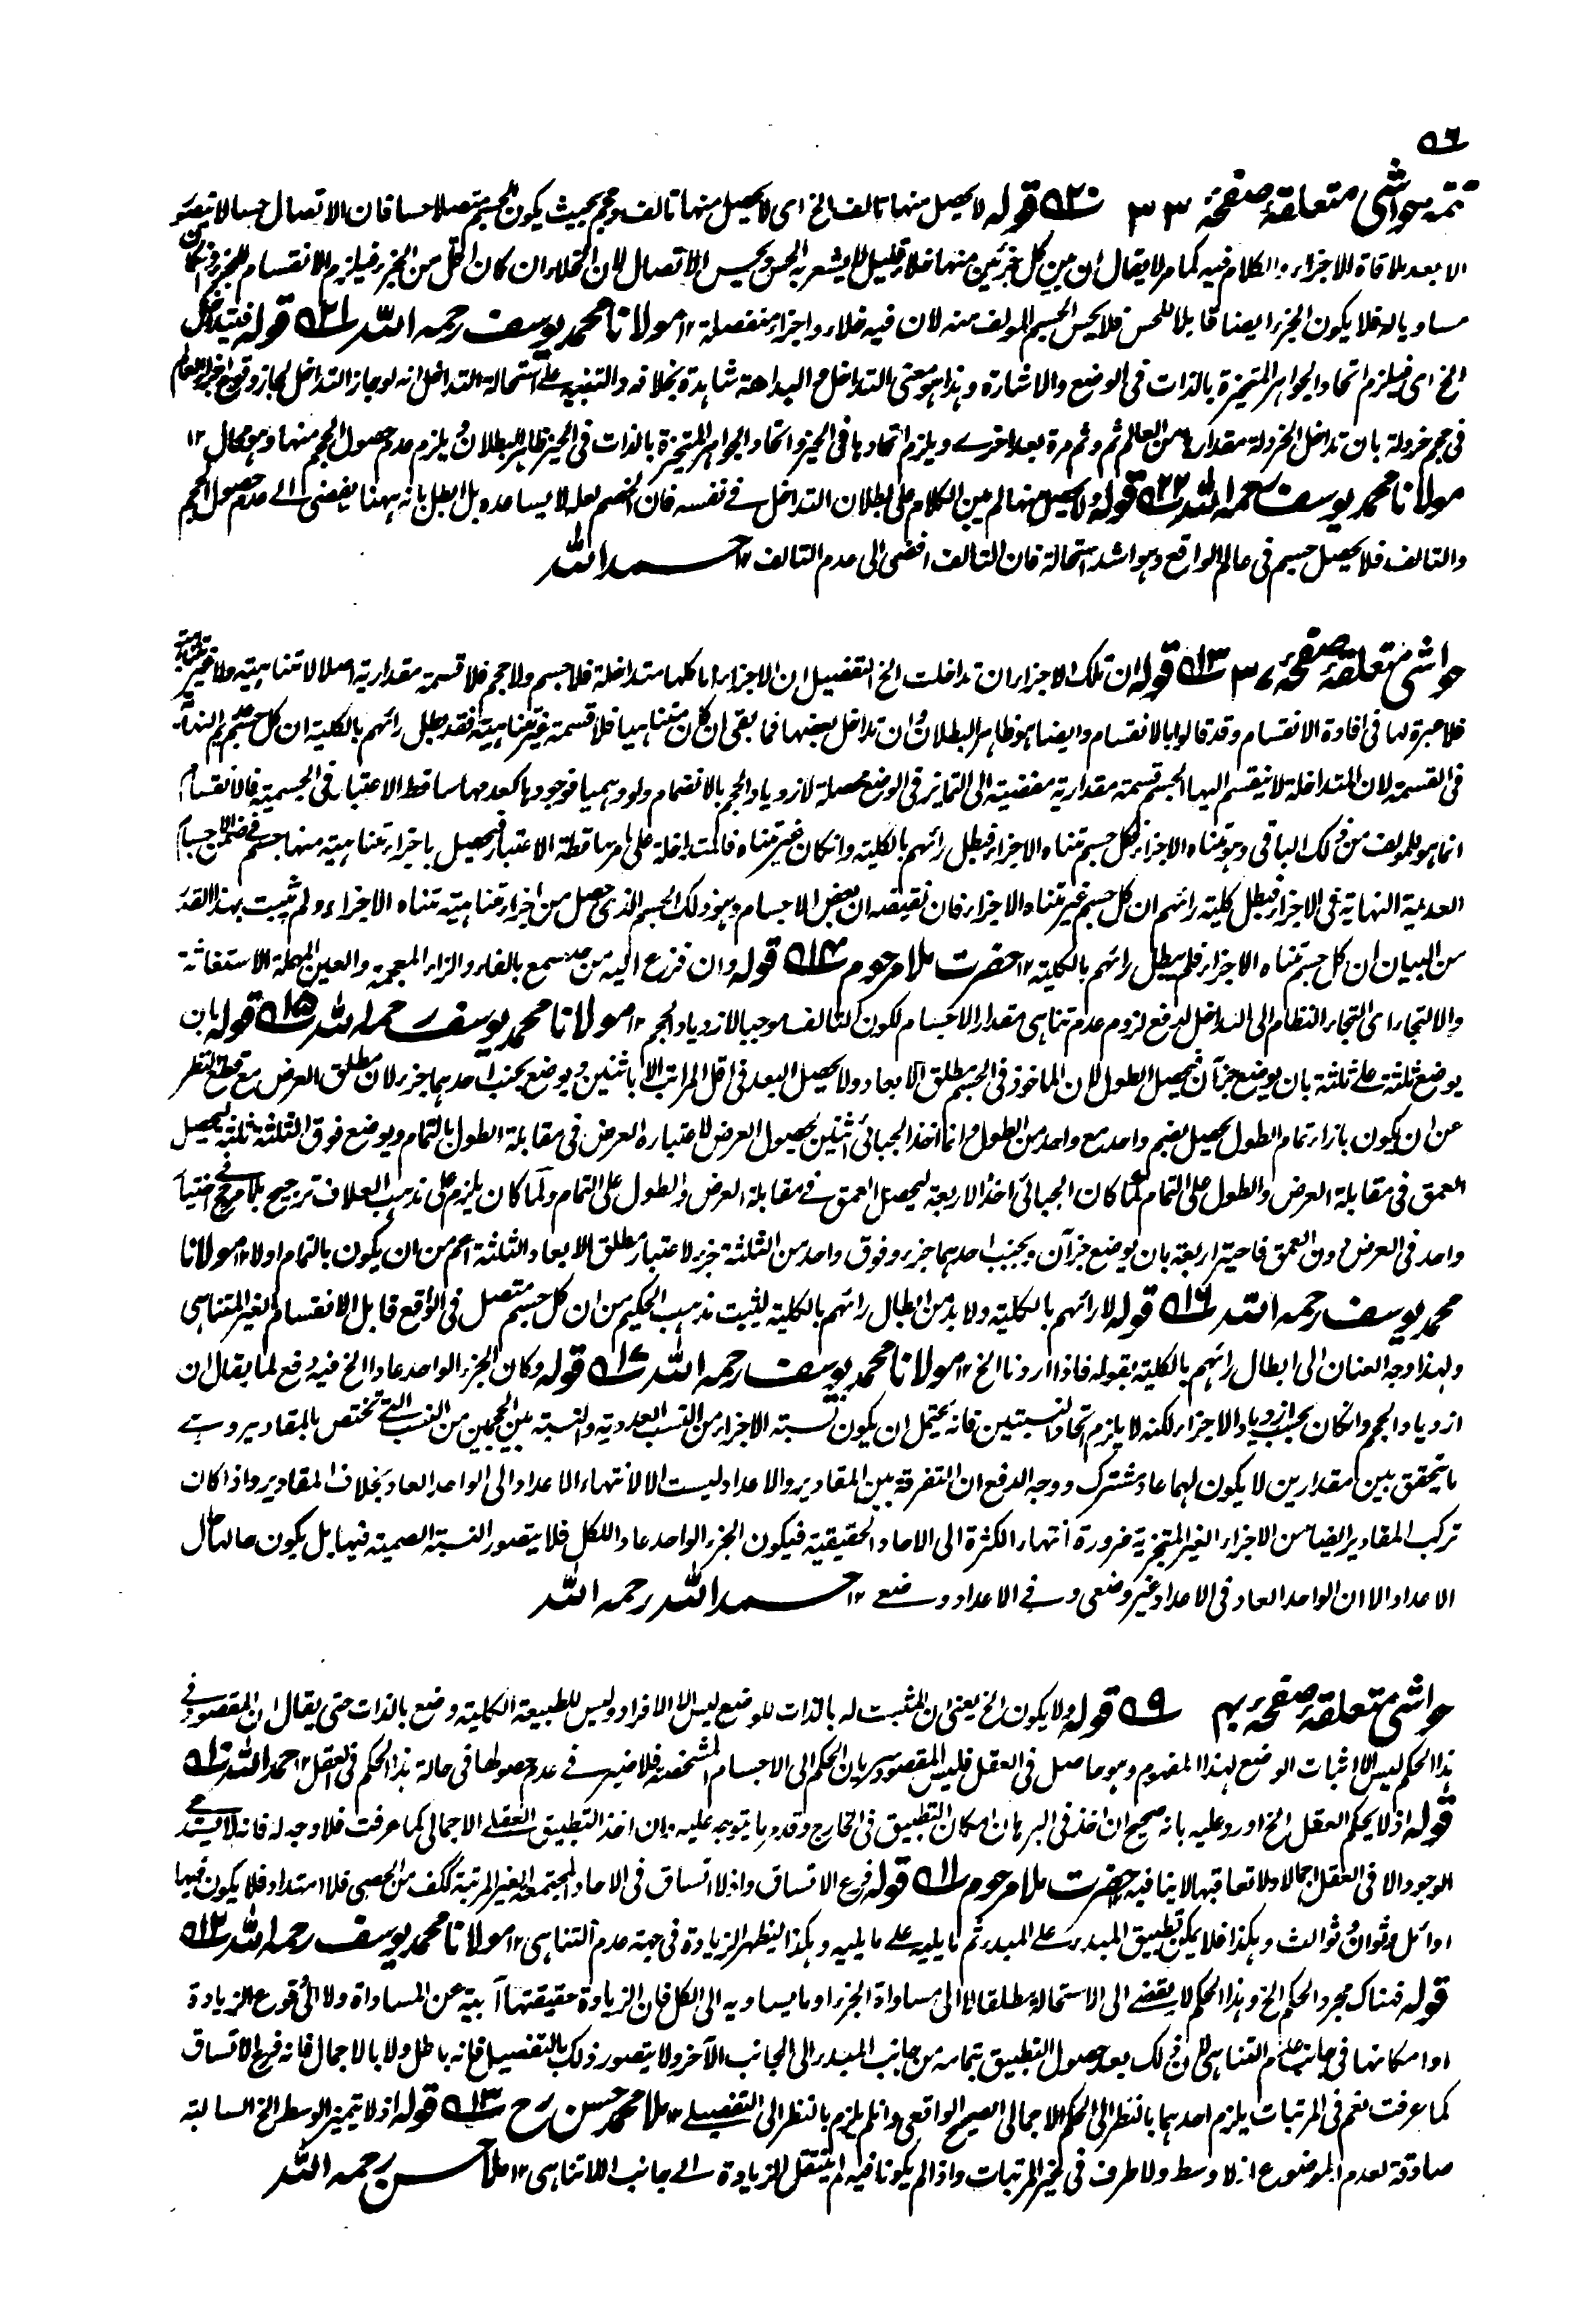 ٥٦
تتمه حواشی متعلقهٔ صفحهٔ ٣٣ ٢٠ قوله لا يحصل منها تالف الخ اى لا يحصل منها تالف وحجم بحيث يكون الجسم متصلا حسا فان الاتصال حسا لا يتصور
الا بعد ملاقاة الاجزاء والكلام فيه كما مر لا يقال ان بين كل جزئين منها خلاء قليل لا يشعر به الحس ويحس الاتصال لان الخلاء ان كان اقل من الجزء فيلزم الانقسام للجزء وان كان
مساويا له فلا يكون الجزء ايضا قابلا للحس فلا يحس الجسم المولف منه لان فيه خلاء واجزاء منفصلة ١٢ مولانا محمد يوسف رحمه الله ٢١ قوله فتداخل
الخ اى فيلزم اتحاد الجواهر المتحيزة بالذات فى الوضع والاشارة وهذا هو معنى التداخل والبداهة شاهدة بخلافه والتنبيه على استحالة التداخل انه لو جاز التداخل لجاز وقوع اجزاء العالم
فى حجم خردلة بان تداخل الخردلة مقدارها من العالم ثم وثم مرة بعد اخرى ويلزم اتحادها فى الحيز واتحاد الجواهر المتحيزة بالذات فى الحيز ظاهر البطلان ويلزم عدم حصول الحجم منها وهو محال ١٢
مولانا محمد يوسف رحمه الله ٢٢ قوله ولا يحصل منها لم يبن الكلام على بطلان التداخل فى نفسه فان الخصم لعله لا يساعده بل ابطل بانه ههنا يفضى الى عدم حصول الحجم
والتالف فلا يحصل جسم فى عالم الواقع وهو اشد استحالة فان التالف افضى الى عدم التالف ١٢ حمد الله
حواشی متعلقهٔ صفحهٔ ٣٧ ١٣ قوله ان تلك الاجزاء ان تداخلت الخ التفصيل ان الاجزاء اما كلها متداخلة فلا جسم ولا حجم فلا قسمة مقدارية اصلا لا تناهية ولا غير متناهية
فلا عبرة لها فى افادة الانقسام وقد قالوا بالانقسام وايضا هو ظاهر البطلان وان تداخل بعضها فما بقى ان كان متناهيا فلا قسمة غير متناهية فقد بطل رائهم بالكلية ان كل جسم عديم النهاية
فى القسمة لان المتداخلة لا ينقسم اليها الجسم قسمة مقدارية مفضية الى التمايز فى الوضع محصلة لازدياد الحجم بالانضمام ولو وهميا فوجودها كعدمها ساقط الاعتبار فى الجسمية فالانقسام
انما هو للمولف من ذلك الباقى وهو متناه الاجزاء فكل جسم متناه الاجزاء فبطل رائهم بالكلية وان كان غير متناه فالمتداخلة على ما مر ساقطة الاعتبار فيحصل باجزاء متناهية منها جسم فى ضمن الاجسام
العديمة النهاية فى الاجزاء فبطل كلية رائهم ان كل جسم غير متناه الاجزاء فان نقيضه ان بعض الاجسام وهو ذلك الجسم الذى حصل من اجزاء متناهية متناه الاجزاء ولم يثبت بهذا القدر
من البيان ان كل جسم متناه الاجزاء فلم يبطل رائهم بالكلية ١٢ حضرت ملا مرحوم ١٤ قوله وان فزع اليه من حد سمع بالفاء والزاء المعجمة والعين المهملة الاستغاثة
والالتجاء اى التجاء النظام الى التداخل لدفع لزوم عدم تناهى مقدار الاجسام لكون التالف موجبا لازدياد الحجم ١٢ مولانا محمد يوسف رحمه الله ١٥ قوله بان
يوضع ثلثة على ثلثة بان يوضع جزآن فيحصل الطول لان الماخوذ فى الجسم مطلق الابعاد ولا يحصل البعد فى اقل المراتب الا باثنين ويوضع بجنب احدهما جزء لان مطلق العرض مع قطع النظر
عن ان يكون بازاء تمام الطول يحصل بضم واحد مع واحد من الطول وانما اخذ الجبائى اثنين لحصول العرض لاعتباره العرض فى مقابلة الطول بالتمام ويوضع فوق الثلثة ثلثة ليحصل
العمق فى مقابلة العرض والطول على التمام كما كان الجبائى اخذ الاربعة ليحصل العمق فى مقابلة العرض والطول على التمام ولما كان يلزم على مذهب العلاف ترجيح بلا مرجح فى اختيار
واحد فى العرض دون العمق فاحتير اربعة بان يوضع جزآن وبجنب احدهما جزء وفوق واحد من الثلثة جزء لاعتبار مطلق الابعاد الثلثة اعم من ان يكون بالتمام اولا ١٢ مولانا
محمد يوسف رحمه الله ١٦ قوله لا رائهم بالكلية ولا بد من ابطال رائهم بالكلية ليثبت مذهب الحكيم من ان كل جسم متصل فى الواقع قابل الانقسام الغير المتناهى
ولهذا وجه العنان الى ابطال رائهم بالكلية بقوله فاذا اردنا الخ ١٢ مولانا محمد يوسف رحمه الله ١٧ قوله وكان الجزء الواحد عادا الخ فيه دفع لما يقال ان
ازدياد الحجم وان كان بحسب ازدياد الاجزاء لكنه لا يلزم اتحاد النسبتين فانه يحتمل ان يكون نسبة الاجزاء من النسب العددية والنسبة بين الحجمين من النسب التى تختص بالمقادير وهى
ما يتحقق بين مقدارين لا يكون لهما عاد مشترك ووجه الدفع ان التفرقة بين المقادير والاعداد ليست الا لانتهاء الاعداد الى الواحد العاد بخلاف المقادير واذا كان
تركب المقادير ايضا من الاجزاء الغير المتجزية ضرورة انتهاء الكثرة الى الآحاد الحقيقية فيكون الجزء الواحد عادا للكل فلا يتصور النسبة الصمية فيها بل يكون حالها حال
الاعداد الا ان الواحد العاد فى الاعداد غير وضعى وفى الاعداد وضعى ١٢ حمد الله رحمه الله
حواشی متعلقهٔ صفحهٔ ٤٠ ٩ قوله ولا يكون الخ يعنى ان المثبت له بالذات للوضع ليس الا الافراد وليس للطبيعة الكلية وضع بالذات حتى يقال ان المقصود فى
هذا الحكم ليس الا اثبات الوضع لهذا المفهوم وهو حاصل فى العقل فليس المقصود سريان الحكم الى الاجسام المشخصة فلا ضير فى عدم حصولها فى حالة هذا الحكم فى العقل ١٢ حمد الله ١٠
قوله اذ لا يحكم العقل الخ اورد عليه بانه صحيح ان اخذ فى البرهان امكان التطبيق فى الخارج وقد مر ما يتوجه عليه وان اخذ التطبيق العقلى الاجمالى كما عرفت فلا وجه له فانه لا يستدعى
الوجود الا فى العقل اجمالا ولا تعاقبها لا ينافيه ١٢ حضرت ملا مرحوم ١١ قوله فرع الاتساق واذ لا اتساق فى الآحاد المجتمعة الغير المرتبة ككف من الحصى فلا امتداد فلا يكون فيها
اوائل وثوان وثوالث وهكذا فلا يمكن تطبيق المبدء على المبدء ثم ما يليه على ما يليه وهكذا ليظهر الزيادة فى جهة عدم التناهى ١٢ مولانا محمد يوسف رحمه الله ١٢
قوله فهناك مجرد الحكم الخ وهذا الحكم لا يفضى الى الاستحالة مطلقا لا الى مساواة الجزء او ما يساويه الى الكل فان الزيادة حقيقتها آبية عن المساواة ولا الى وقوع الزيادة
او امكانها فى جانب عدم التناهى لان ذلك بعد حصول التطبيق بتمامه من جانب المبدء الى الجانب الآخر ولا يتصور ذلك بالتفصيل فانه باطل ولا بالاجمال فانه فرع الاتساق
كما عرفت نعم فى المرتبات يلزم احدهما بالنظر الى الحكم الاجمالى الصحيح الواقعى وان لم يلزم بالنظر الى التفصيلى ١٢ ملا محمد حسن رح ١٣ قوله اذ لا يتميز الوسط الخ السالبة
صادقة لعدم الموضوع اذ لا وسط ولا طرف فى غير المرتبات واذا لم يكونا فيه لم ينتقل الزيادة الى جانب اللاتناهى ١٢ ملا حسن رحمه الله